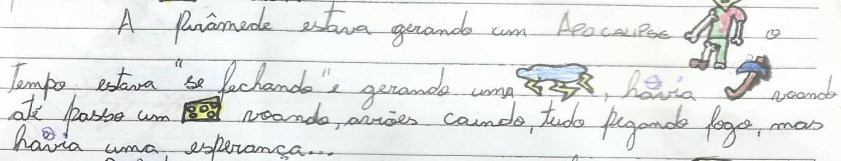 A Pirâmede estava gerando um APOCALIPSE o
Tempo estava "se fechando" e gerando uma , havia voando
até passo um voando, aviões caindo, tudo pegando fogo, mas
havia uma esperança...